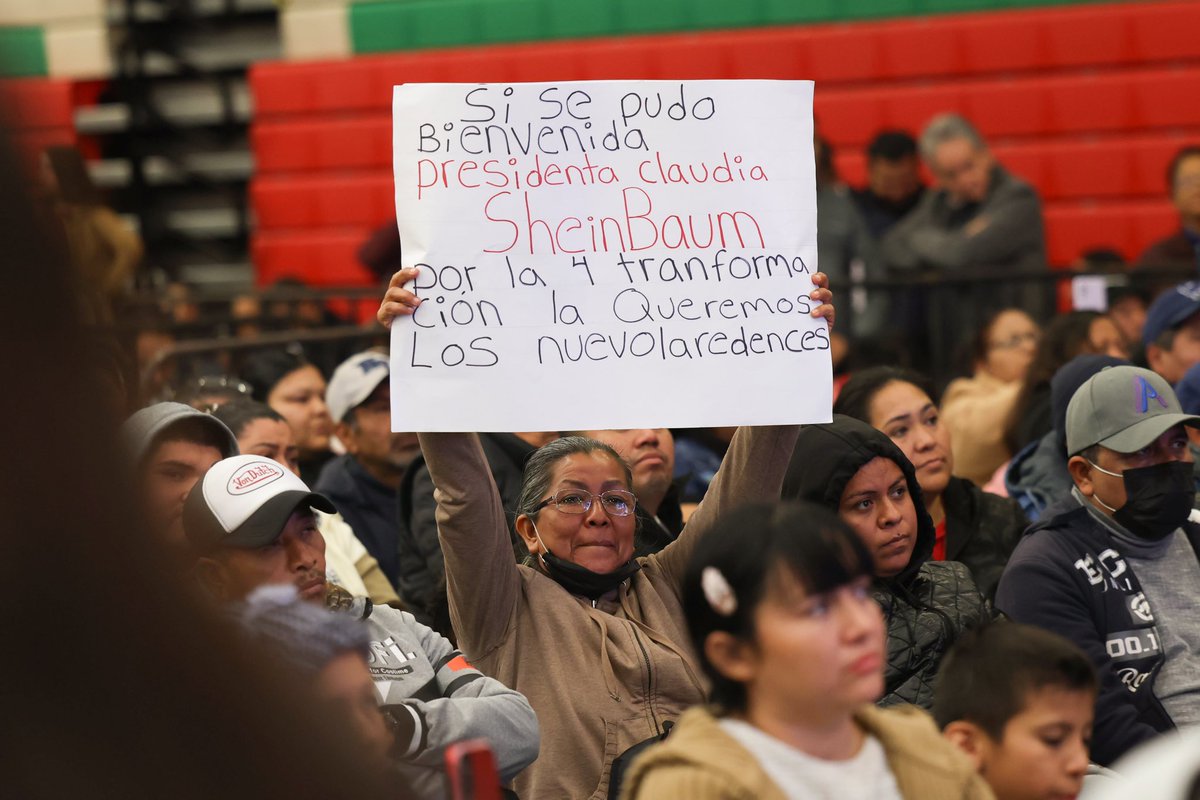 Si se pudo
Bienvenida
presidenta claudia
SheinBaum
por la 4 tranforma
ción la Queremos
Los nuevolaredences
Von Dutch
00.1